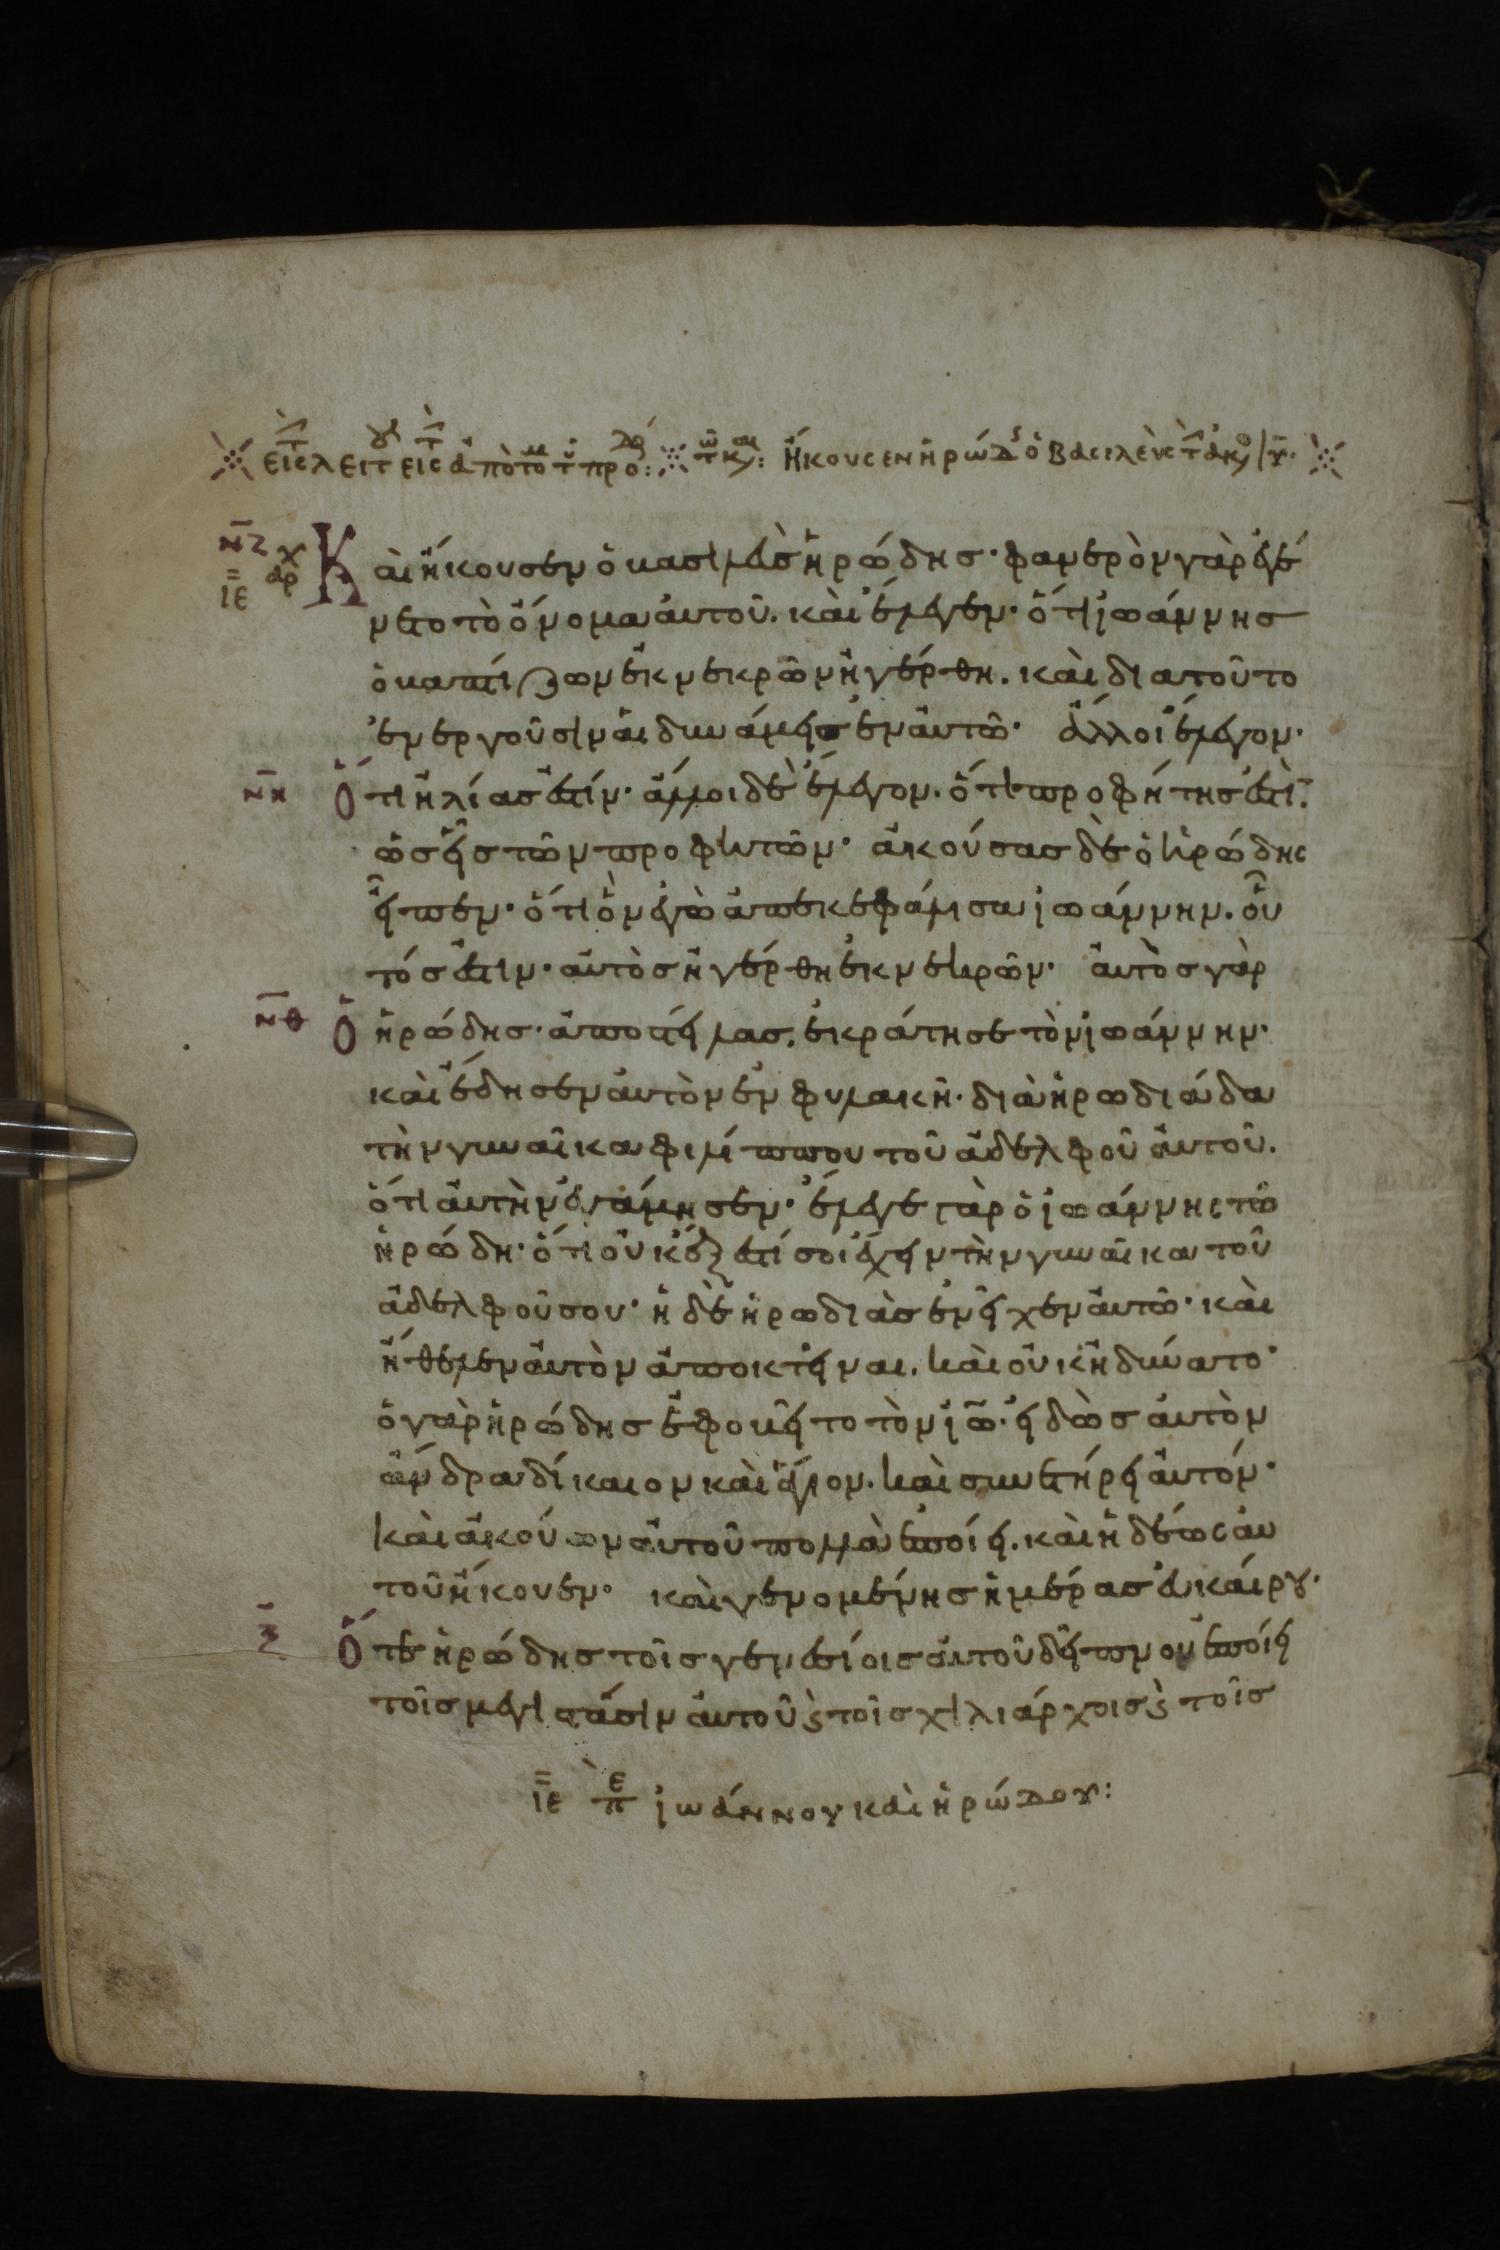 Καὶ ἤκουσεν ὁ βασιλεὺς ἡρώδης· φανερὸν γὰρ ἐγέ
νετο τὸ ὄνομα αὐτοῦ. καὶ ἔλεγεν· ὅτι ἰωάννης
ὁ βαπτίζων ἐκ νεκρῶν ἠγέρθη. καὶ διατοῦτο
ἐνεργοῦσιν αἱ δυνάμεις ἐν αὐτῶ· ἄλλοι ἔλεγον·
νη Ὅτι ἠλίας ἐστίν· ἄλλοι δὲ ἔλεγον. ὅτι προφήτης ἐστὶ.
ὡς εἷς τῶν προφητῶν· ἀκούσας δὲ ὁ ἡρώδης
εἶπεν· ὅτι ὃν ἐγὼ ἀπεκεφάλισα ἰωάννην. οὗ
τός ἐστιν· αὐτὸς ἠγέρθη ἐκ νεκρῶν· αὐτὸς γὰρ
νθ Ὁ ἡρώδης· ἀποστείλας, ἐκράτησε τὸν ἰωάννην·
καὶ ἔδησεν αὐτὸν ἐν φυλακῆ· διὰ ἡρωδιάδα
τὴν γυναῖκα φιλίππου τοῦ ἀδελφοῦ αὐτοῦ.
ὅτι αὐτὴν ἐγάμησεν· ἔλεγε γὰρ ὁ ἰωάννης τῶ
ἡρώδη· ὅτι οὐκ ἔξεστί σοι ἔχειν τὴν γυναῖκα τοῦ
ἀδελφοῦ σου· ἡ δὲ ἡρωδιὰς ἐνεῖχεν αὐτῶ· καὶ
ἤθελεν αὐτὸν ἀποκτεῖναι. καὶ οὐκ ἠδύνατο·
ὁ γὰρ ἡρώδης ἐφοβεῖτο τὸν ἰω· εἰδὼς αὐτὸν
ἄνδρα δίκαιον καὶ ἅγιον. καὶ συνετήρει αὐτόν·
καὶ ἀκούων αὐτοῦ πολλὰ ἐποίει. καὶ ἡδέως αὐ
τοῦ ἤκουεν· καὶ γενομένης ἡμέρας εὐκαίρου·
ξ Ὅτε ἡρώδης τοῖς γενεσίοις αὐτοῦ δεῖπνον ἐποίει
τοῖς μεγιστᾶσιν αὐτοῦ ϗ τοῖς χιλιάρχοις ϗ τοῖς
ιε πε ἰωάννου καὶ ἡρώδου: